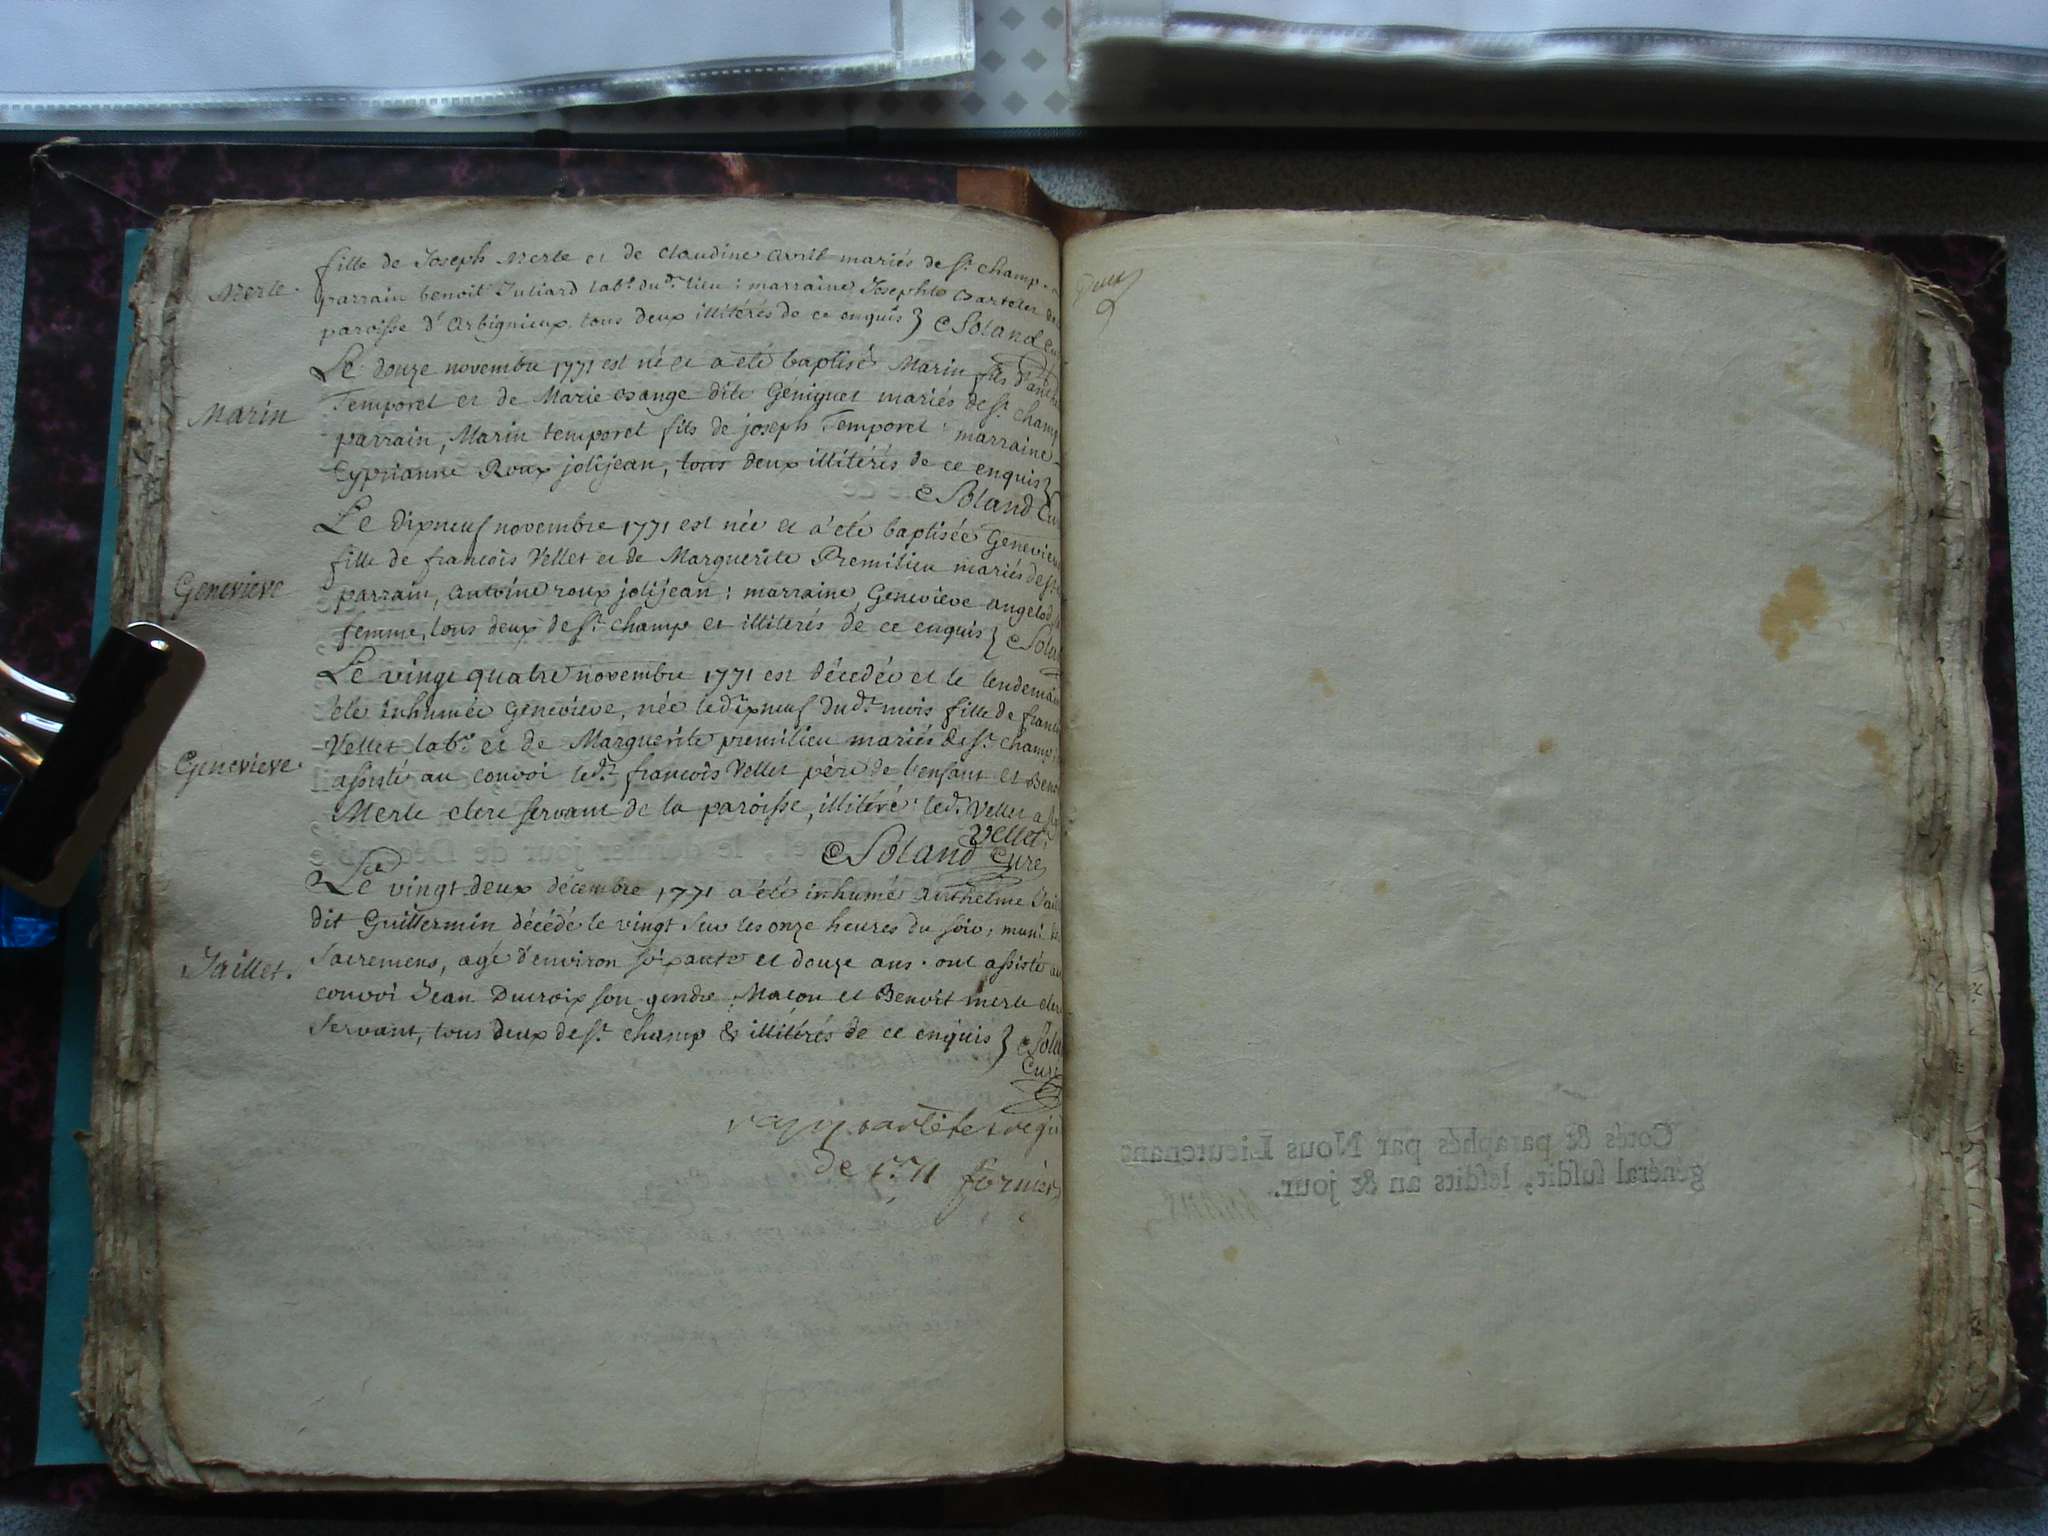 fille de Joseph Merle et de Claudine Avril mariés de St. champ
Merle.
parrain benoit Juliard labr. dudt. lieu : marraine, Josephte
paroisse d'Arbignieux, tous deux illitérés de ce enquis } Soland
Le douze novembre 1771 est né et a été baptisé Marin fils
Marin
Temporel et de Marie Bange dite Géniguet mariés de St. champ
parrain, Marin temporel fils de joseph Temporel : marraine
Cyprianne Roux jolijean, tous deux illitérés de ce enquis }
Soland Cu
Le dixneuf novembre 1771 est née et a été baptisée Genevieve
Genevieve
fille de francois Vellet et de Marguerite Premilieu mariés de St.
parrain, antoine roux jolijean : marraine, Genevieve angelod
femme, tous deux de St. champ et illiterés de ce enquis } Solan
Le vingt quatre novembre 1771 est décedée et le lendemain
été inhumée Genevieve, née le dixneuf dudt. mois fille de franco
Genevieve.
Vellet labr. et de Marguerite premilieu mariés de St. champ,
assisté au convoi ledt. francois Vellet père de l'enfant et Beno
Merle clerc servant de la paroisse, illitéré : ledt. Vellet a
Vellet
Soland Curé
Le vingt deux décembre 1771 a été inhumé Anthelme Jail
dit Guillermin décédé le vingt sur les onze heures du soir, muni
Jaillet.
Sacremens, agé d'environ soixante et douze ans. ont assisté au
convoi Jean Ducroix son gendre, Macon et Benoit merle cler
Servant, tous deux de St. champ & illitérés de ce enquis } Sola
Curé
de 1771 fornier
Deux
Cotés & paraphés par Nous Lieutenant
général susdit, lesdits an & jour.